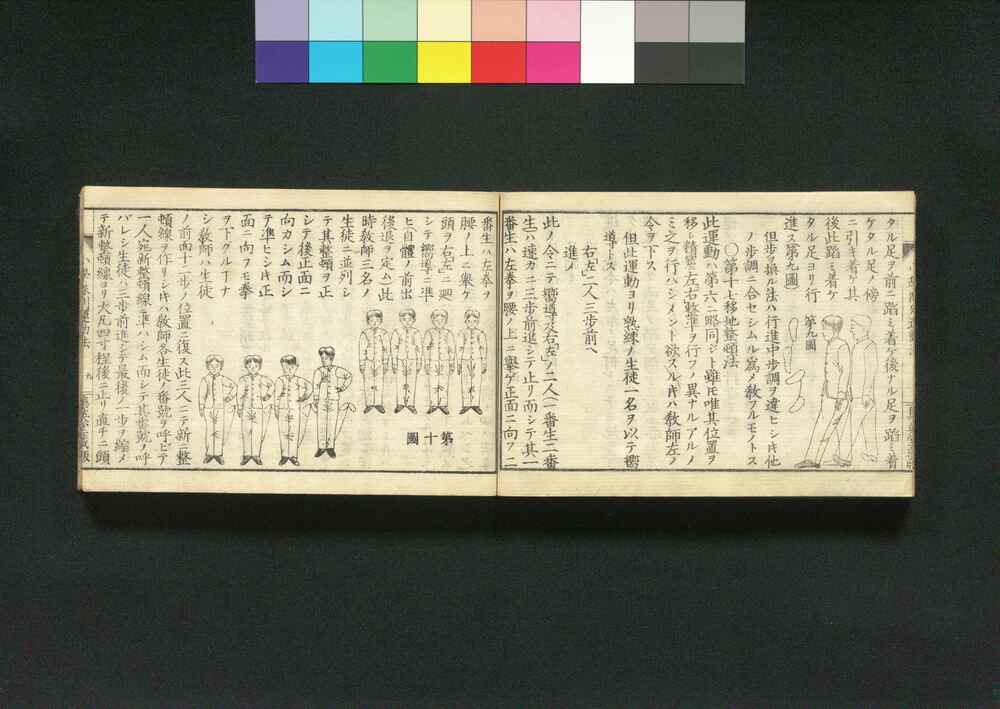 タル足ヲ前ニ踏ミ着ケ後ナル足ヲ踏ミ着
ケタル足ノ傍
ニ引キ着ケ其
後此踏ミ着ケ
タル足ヨリ行
進ス第九圖
第九圖
但歩ヲ換ル法ハ行進中歩調ヲ違ヒシ𪜈他
ノ歩調ニ合セシムル爲メ敎フルモノトス
○第十七移地整頓法
此運動ハ第六ニ略同ジト雖𪜈唯其位置ヲ
移シ精密ニ左右整準ヲ行フノ異ナルアルノ
ミ之ヲ行ハシメント欲スル𪜈ハ敎師左ノ
令ヲ下ス
但此運動ヨリ熟練ノ生徒一名ヲ以テ嚮
導トス
右(左)二人三歩前ヘ
進メ
此ノ令ニテ嚮導及右(左)ノ二人(一番生二番
生)ハ速カニ三歩前進シテ止リ而シテ其一
番生ハ左拳ヲ腰ノ上ニ擧ゲ正面ニ向フ二
番生ハ左拳ヲ
腰ノ上ニ擧ケ
頭ヲ右(左)ニ廻
シテ嚮導ニ準
ヒ自體ノ前出
後退ヲ定ム此
時敎師三名ノ
生徒ニ並列シ
テ其整頓ヲ正
シテ後正面ニ
向カシム而シ
テ準ヒシ𪜈正
面ニ向フモ拳
ヲ下グル丁ナ
シ敎師ハ生徒
第十圖
ノ前面十二歩ノ位置ニ復ス此三人ニテ新ニ整
頓線ヲ作リシ𪜈ハ敎師各生徒ノ番號ヲ呼ビテ
一人宛新整頓線ニ準ハシム而シテ其番號ノ呼
バレシ生徒ハ三歩前進シテ最後ノ一歩ヲ縮メ
テ新整頓線ヨリ大凡四寸程後ニ止リ直チニ頭